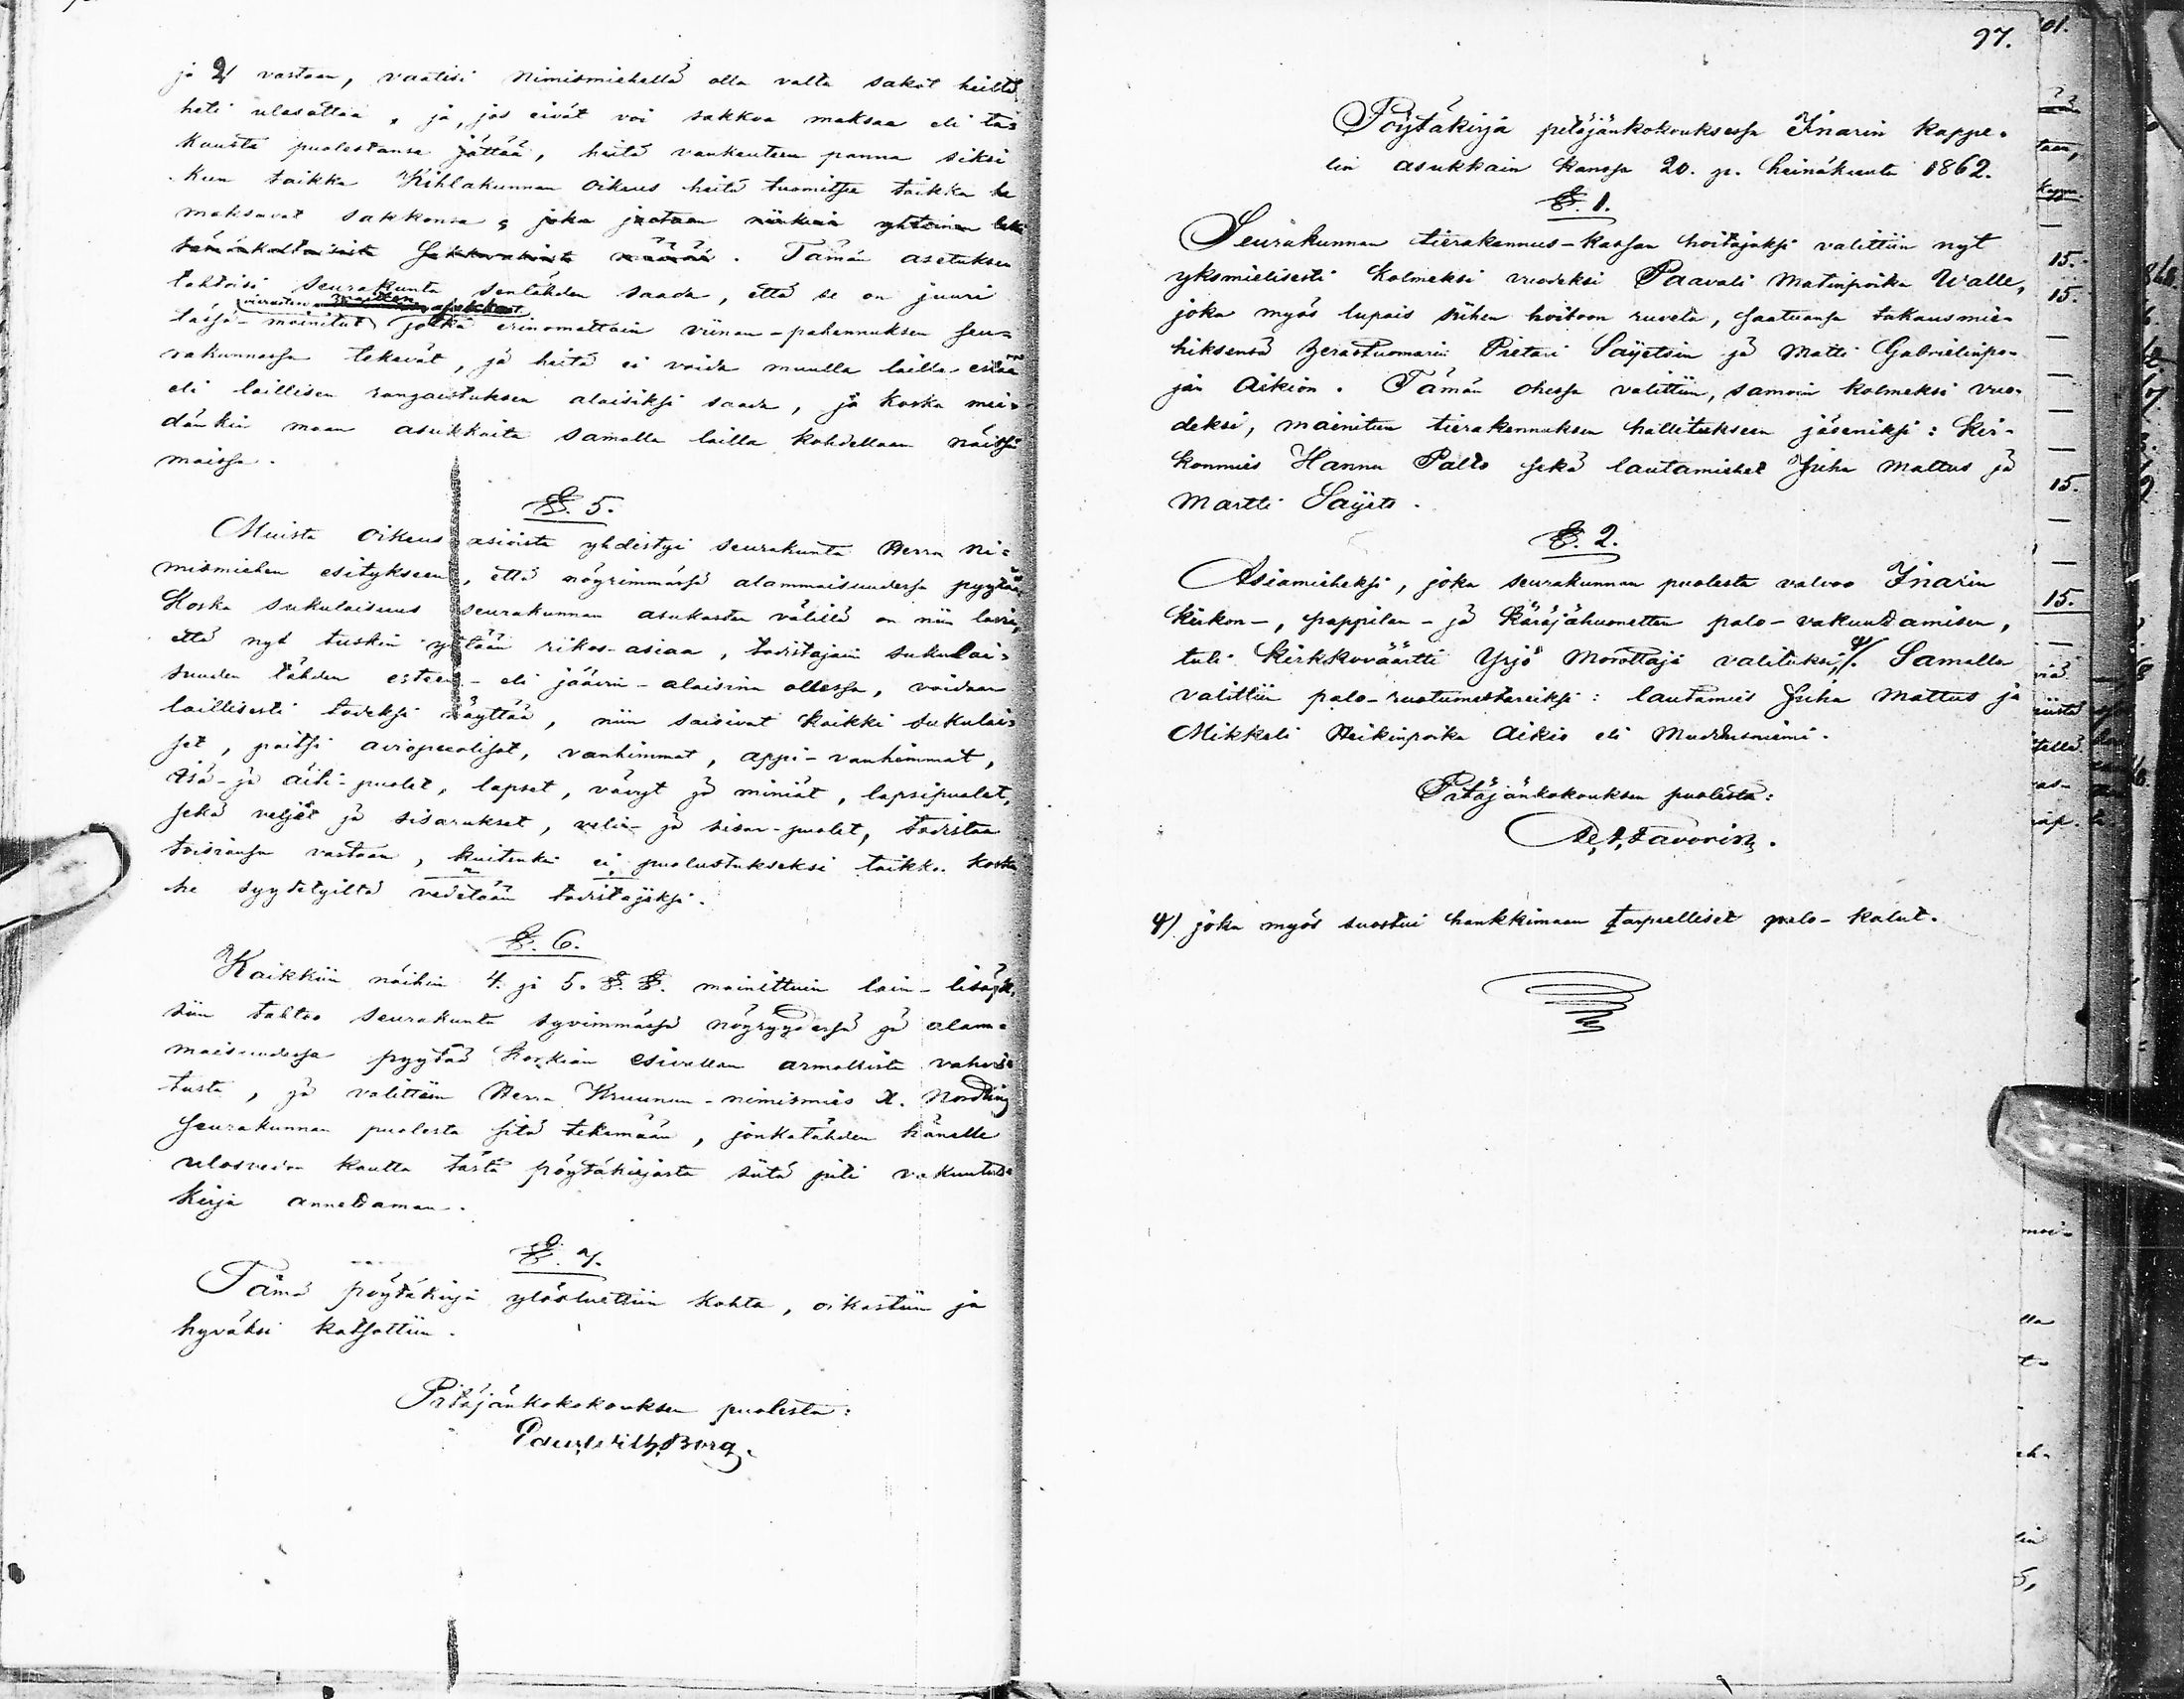 ja 2/ vastaan, vaatisi Nimismiehellä olla valta sakot heiltä
heti ulosottaa, ja, jos eivät voi sakkoa maksaa eli ta=
kausta puolestansa jättää, heitä vankeuteen panna siksi
kun taikka Kihlakunnan oikeus heitä tuomitsee taikka he
maksavat sakkonsa, joka jaetaan niinkuin yhteinen laki
Tämän asetuksen
tahtoisi seurakunta sentähden saada, että se on juuri
vierasten maitten asukkaat
tässä-mainitut jotka erinomattain viinan-pahennuksen seu=
rakunnassa tekevät, ja heitä ei voida muulla lailla estää
eli laillisen rangaistuksen alaisiksi saada, ja koska mei=
dänkin maan asukkaita samalla lailla kohdellaan näissä
maissa.
§. 5.
Muista oikeus asioista yhdistyi seurakunta Herra Ni=
mismiehen esitykseen, että nöyrimmässä alammaisuudessa pyytää,
Koska sukulaisuus seurakunnan asukasten välillä on niin lavia,
että nyt tuskin yhtään rikos-asiaa, todistajain sukulai=
suuden tähden esteen- eli jäävin-alaisina ollessa, voidaan
laillisesti todeksi näyttää, niin saisivat kaikki sukulai=
set, paitsi aviopuolisot, vanhimmat, appi-vanhimmat,
Isä- ja äiti-puolet, lapset, vävyt ja miniät, lapsipuolet,
sekä veljet ja sisarukset, veli- ja sisar-puolet, todistaa
toisiansa vastaan, kuitenkin ei puolustukseksi taikka koska
he syytetyiltä vedetään todistajiksi.
§. 6.
Kaikkiin näihin 4. ja 5. §. §. mainittuin lain-lisäyk=
siin tahtoo seurakunta syvimmässä nöyryydessä ja alam=
maisuudessa pyytää korkian esivallan armollista vahvis=
tusta, ja valittiin Herra Kruunun-nimismies X. Nordling
seurakunnan puolesta sitä tekemään, jonkatähden hänelle
ulosvedon kautta tästä pöytäkirjasta siitä piti vakuutus=
kirja annettaman.
§. 7.
Tämä pöytäkirja ylösluettiin kohta, oikastiin ja
hyväksi katsottiin.
Pitäjänkokokouksen puolesta:
Borg.
97.
Pöytäkirja pitäjänkokouksessa Inarin kappe=
lin asukkain kanssa 20. p. heinäkuuta 1862.
§. 1.
Seurakunnan tierakennus-kassan hoitajaksi valittiin nyt
yksmielisesti kolmeksi vuodeksi Paavali Matinpoika Walle,
joka myös lupais siihen hoitoon ruveta, saatuansa takausmie=
hiksensä herastuomarin Pietari Sayetsin ja Matti Gabrielinpo=
jan Aikion. Tämän ohessa valittiin, samoin kolmeksi vuo=
deksi, mainitun tierakennuksen hallitukseen jäseniksi: Kir=
konmies Hannu Palto sekä lautamiehet Juha Mattus ja
Martti Sayets.
§. 2.
Asiamieheksi, joka seurakunnan puolesta valvoo Inarin
kirkon-, pappilan- ja käräjähuonetten palo-vakuudamisen,
tuli kirkkoväärtti Yrjö Morottaja valituksi 4/. Samalla
valittiin palo-ruotumestareiksi: lautamies Juha Mattus ja
Mikkeli Heikinpoika Aikio eli Muddusniemi.
Pitäjänkokouksen puolesta:
4) joka myös suostui hankkimaan tarpeelliset palo-kalut.